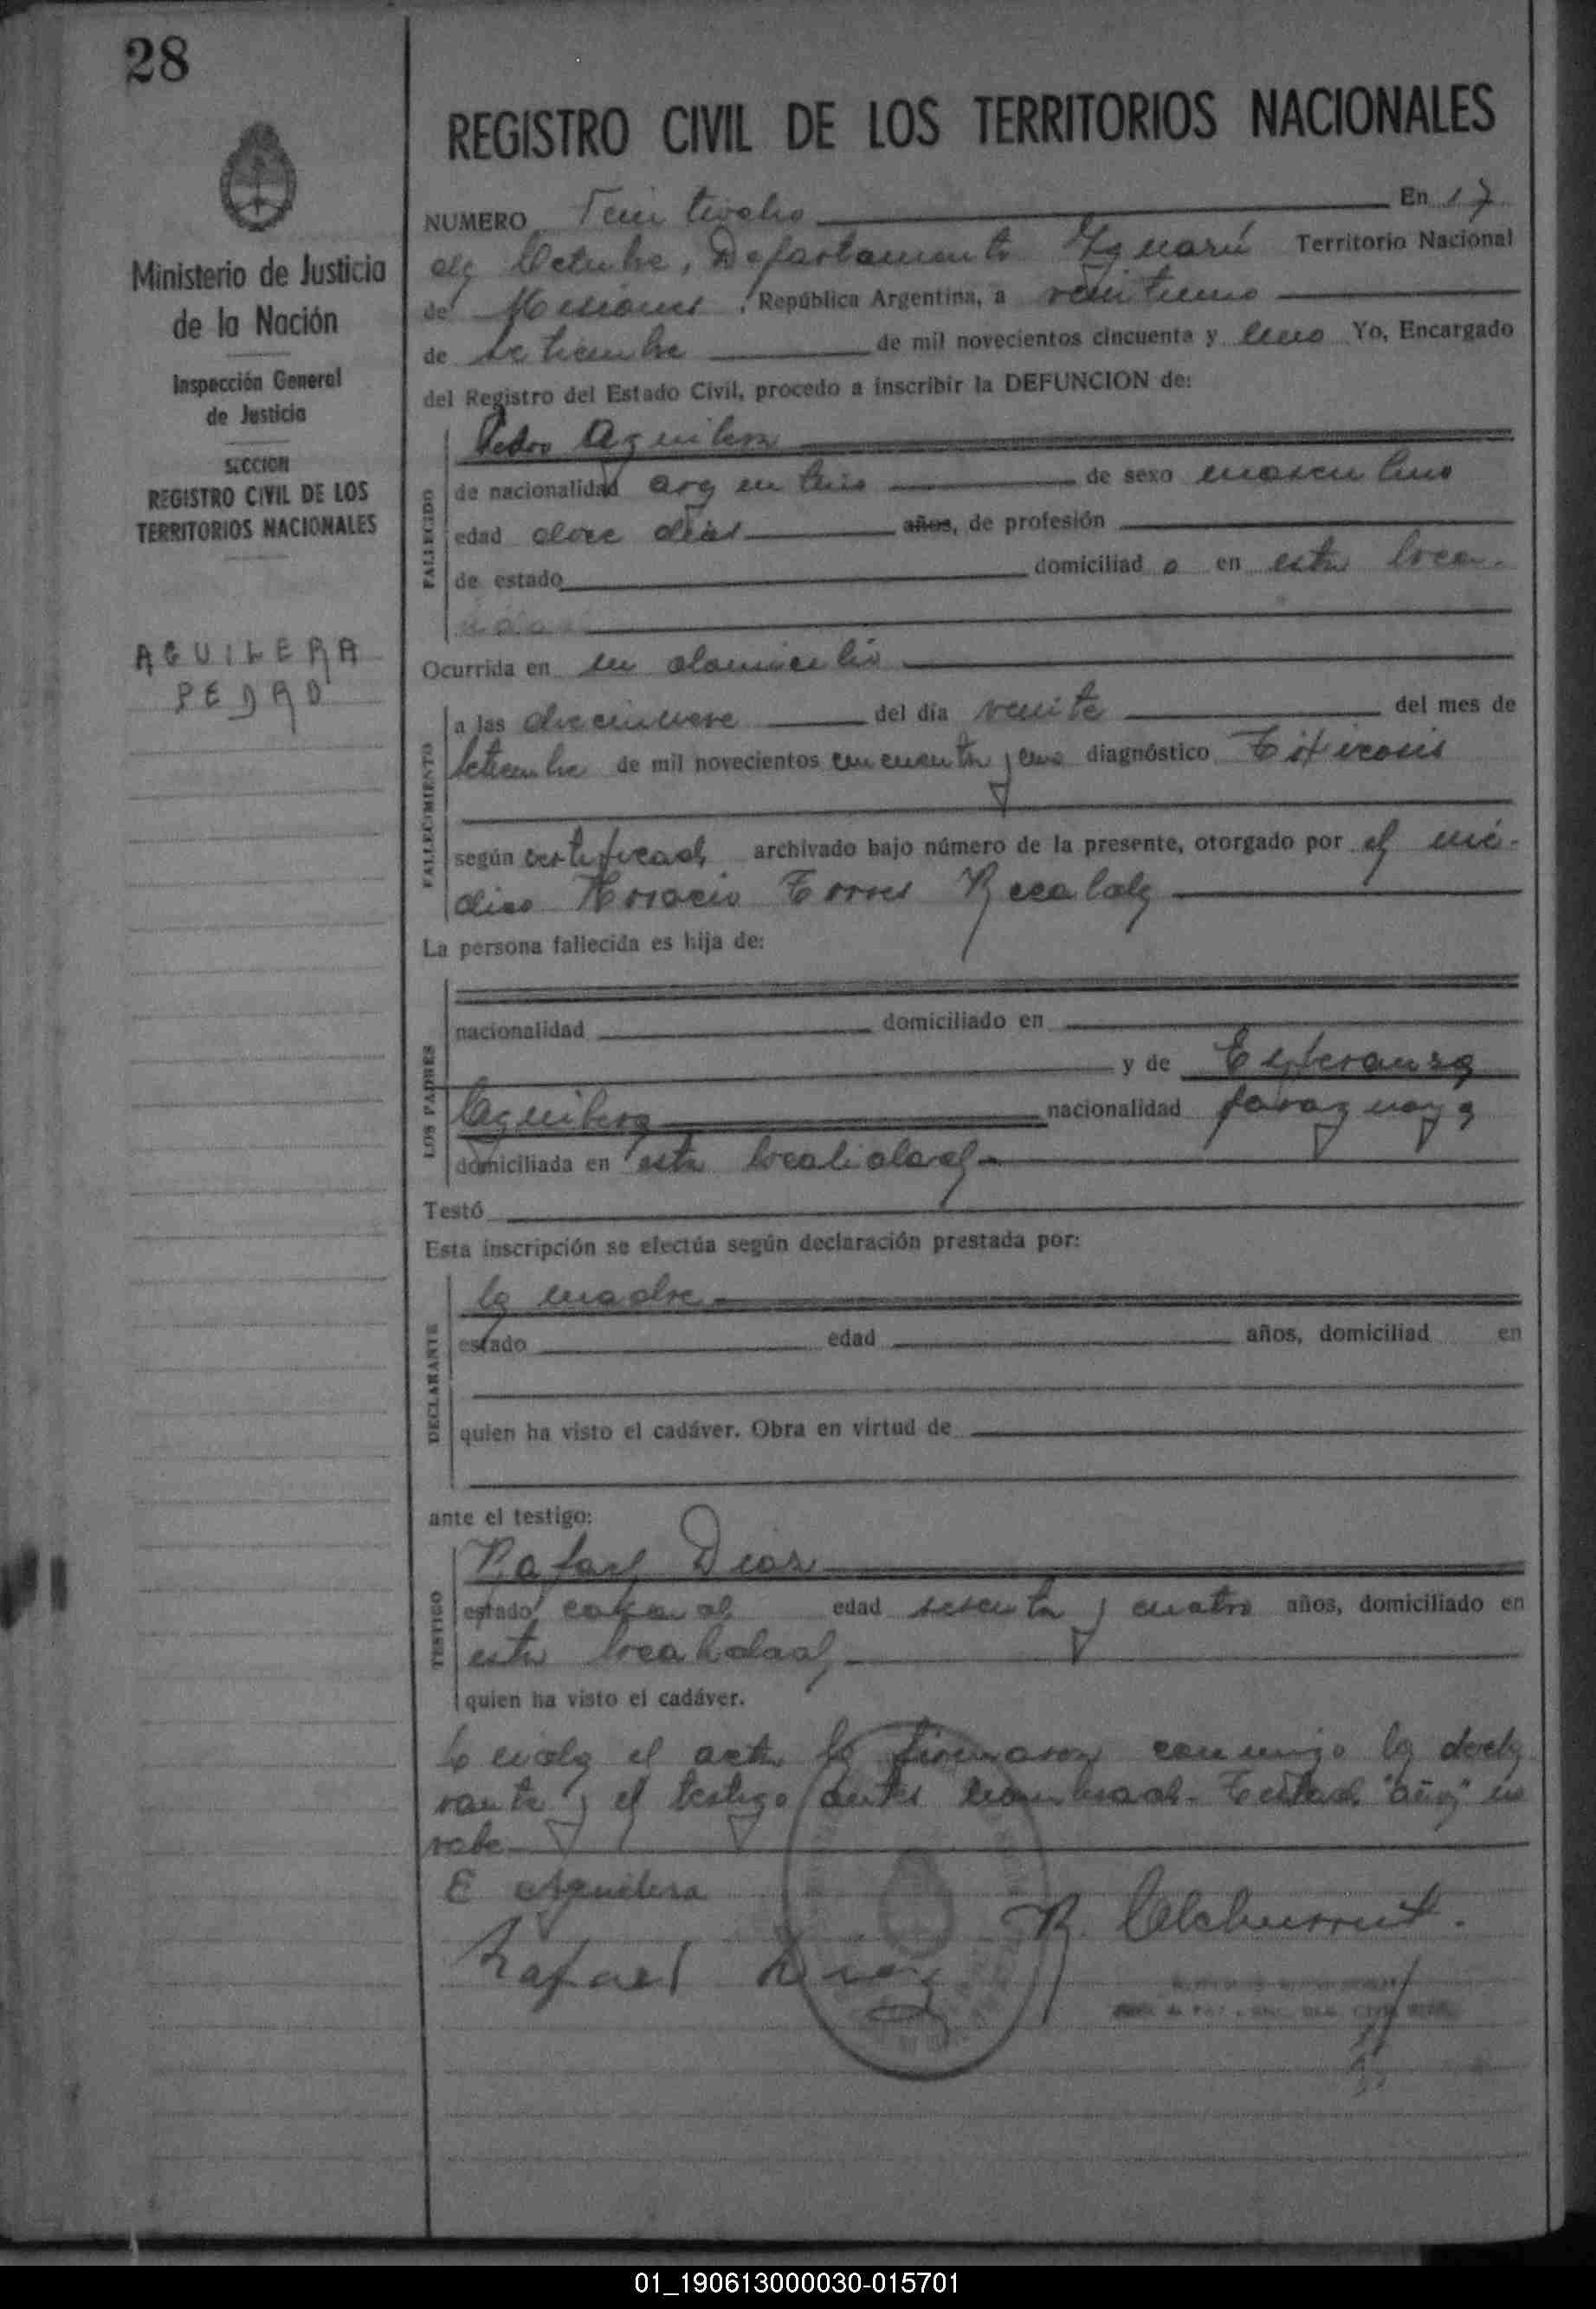 28
Ministerio de Justicia
de la Nación
Inspección General
de Justicia
SECCION
REGISTRO CIVIL DE LOS
TERRITORIOS NACIONALES
AGUILERA
PEDRO
REGISTRO CIVIL DE LOS TERRITORIOS NACIONALES
NUMERO Veintiocho En 17
de Octubre, Departamento Iguazú Territorio Nacional
de Misiones, República Argentina, a veintiuno
de setiembre de mil novecientos cincuenta y uno Yo, Encargado
del Registro del Estado Civil, procedo a inscribir la DEFUNCION de:
FALLECIDO
Pedro Aguilera
de nacionalidad argentino de sexo masculino
edad doce días años, de profesión
de estado domiciliado en esta loca-
lidad
Ocurrida en su domicilio
FALLECIMIENTO
a las diecinueve del día veinte del mes de
setiembre de mil novecientos cincuenta y uno diagnóstico Toxicosis
según certificado archivado bajo número de la presente, otorgado por el mé-
dico Horacio Torres Recalde
La persona fallecida es hija de:
LOS PADRES
nacionalidad domiciliado en
y de Esperanza
Aguilera nacionalidad paraguaya
domiciliada en esta localidad
Testó
Esta inscripción se efectúa según declaración prestada por:
DECLARANTE
la madre
estado edad años, domiciliad en
quien ha visto el cadáver. Obra en virtud de
ante el testigo:
TESTIGO
Rafael Diaz
estado casado edad sesenta y cuatro años, domiciliado en
esta localidad
quien ha visto el cadáver.
Leida el acta la firmaron conmigo la decla
rante y el testigo antes nombrado. Testado "años" no
vale
E Aguilera
Rafael Diaz
R.
01_190613000030-015701